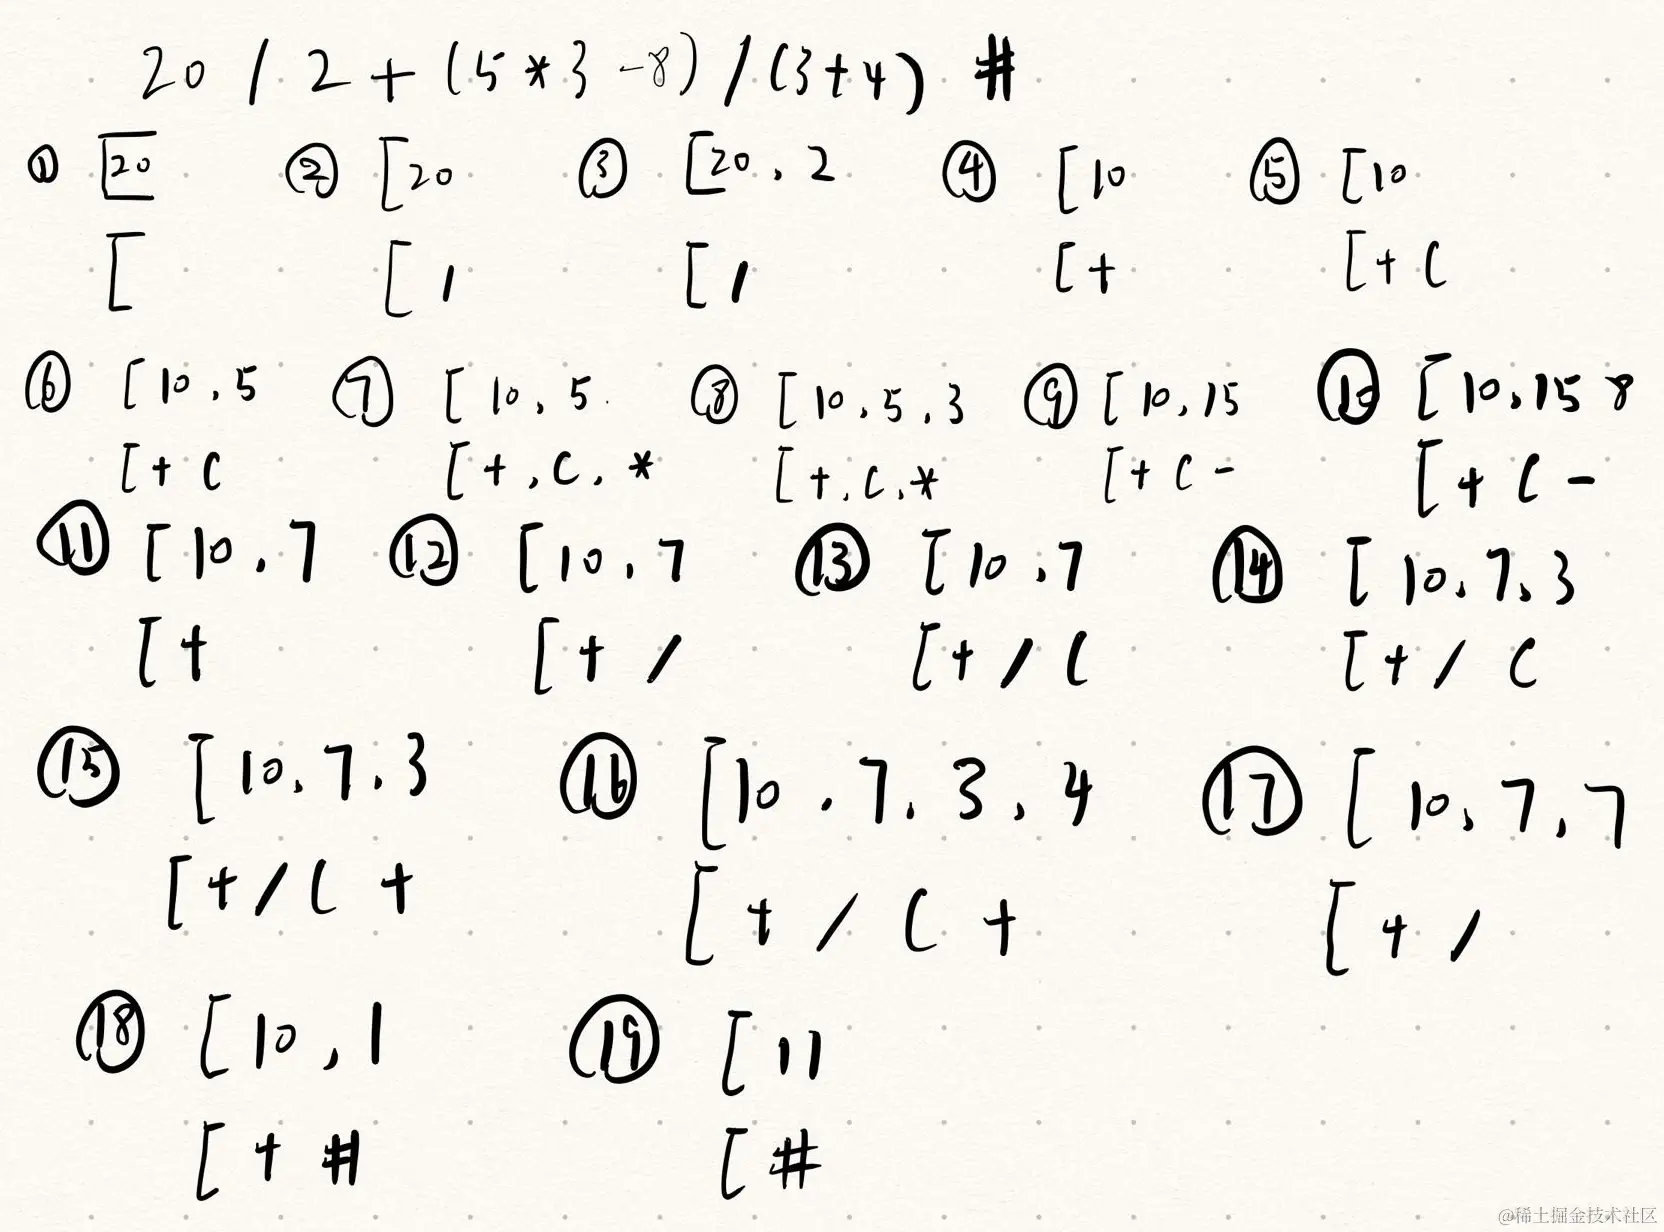 20 / 2 + (5 * 3 - 8) / (3 + 4) #
① [20 ② [20 ③ [20, 2 ④ [10 ⑤ [10
[ [ / [ / [ + [ + (
⑥ [10, 5 ⑦ [10, 5 ⑧ [10, 5, 3 ⑨ [10, 15 ⑩ [10, 15 8
[ + ( [ +, (, * [ +, (, * [ + ( - [ + ( -
⑪ [10, 7 ⑫ [10, 7 ⑬ [10, 7 ⑭ [10, 7, 3
[ + [ + / [ + / ( [ + / (
⑮ [10, 7, 3 ⑯ [10, 7, 3, 4 ⑰ [10, 7, 7
[ + / ( + [ + / ( + [ + /
⑱ [10, 1 ⑲ [11
[ + # [ #
@稀土掘金技术社区